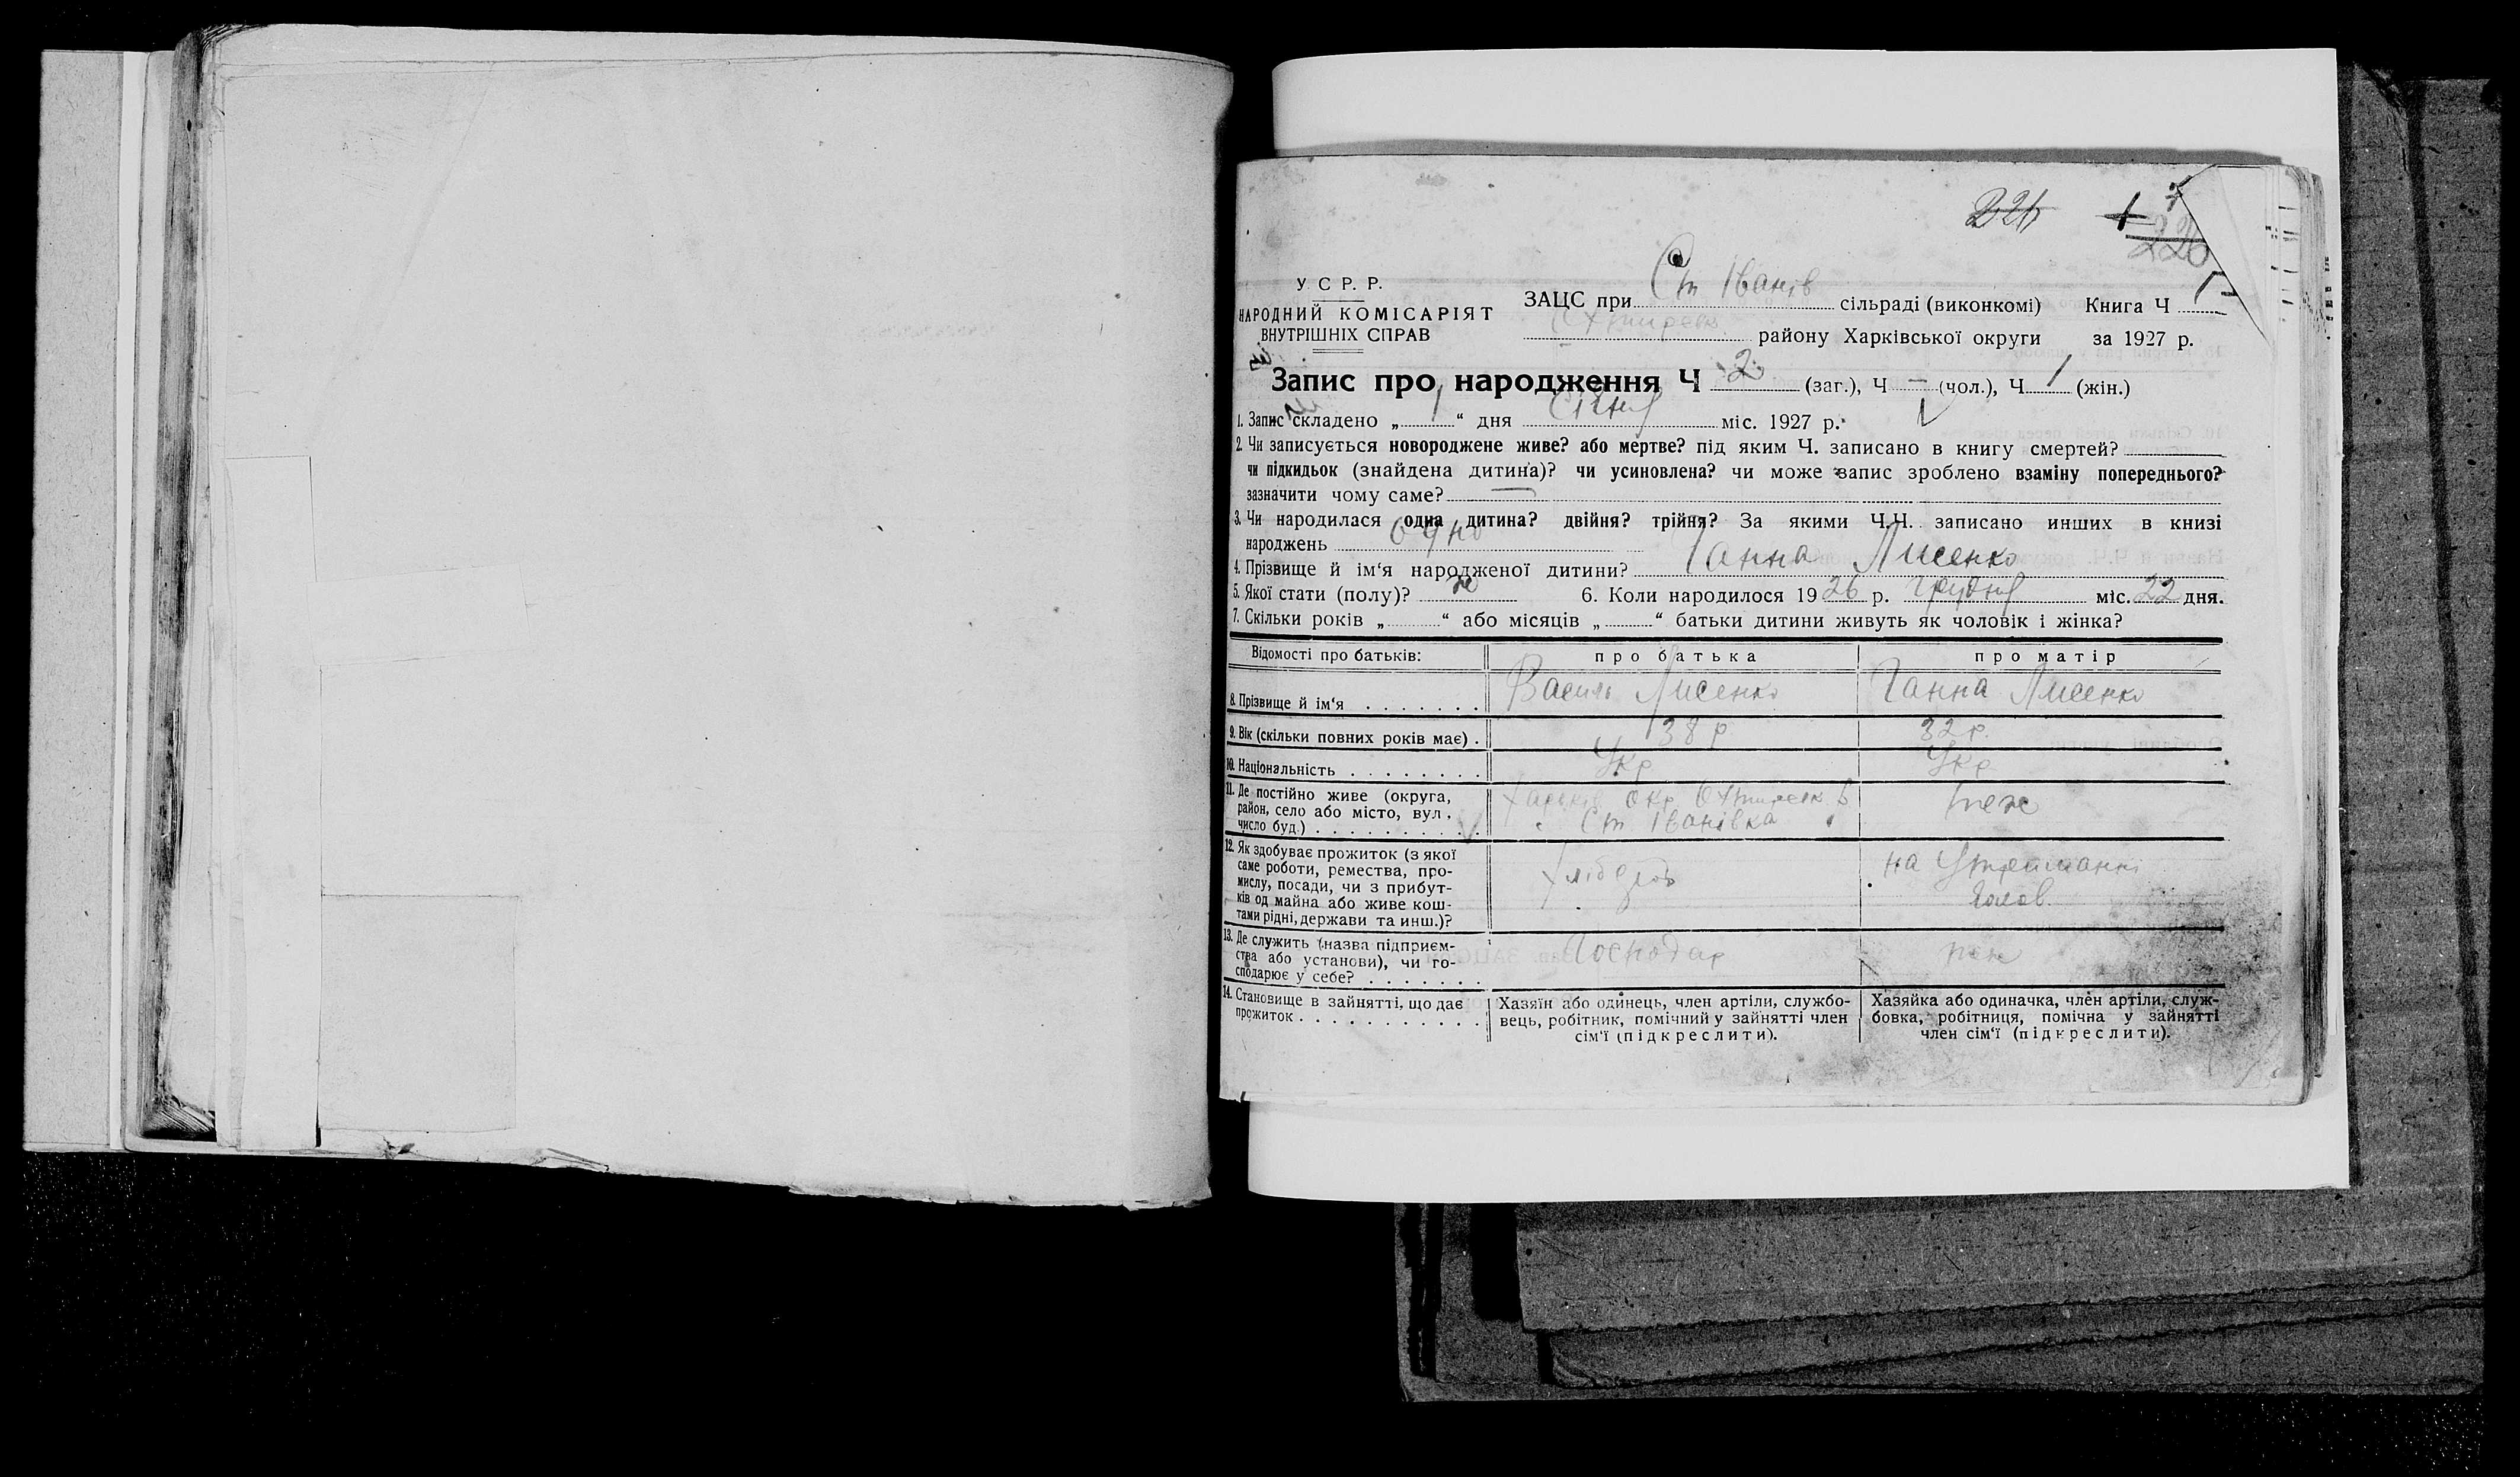 226
226
У С Р. Р.
НАРОДНИЙ КОМІСАРІЯТ
ВНУТРІШНІХ СПРАВ
ЗАЦС при Ст Іванів сільраді (виконкомі) Книга Ч 1
району Харківської округи за 1927 р.
Запис про народження Ч 2 (заг.), Ч — (чол.), Ч 1 (жін.)
1. Запис складено „ 1 “ дня Січня міс. 1927 р.
2. Чи записується новороджене живе? або мертве? під яким Ч. записано в книгу смертей?
чи підкидьок (знайдена дитина)? чи усиновлена? чи може запис зроблено взаміну попереднього?
зазначити чому саме? —
3. Чи народилася одна дитина? двійня? трійня? За якими Ч.Ч. записано инших в книзі
народжень одно
4. Прізвище й ім‘я народженої дитини? Ганна Лисенко
5. Якої стати (полу)? ж 6. Коли народилося 1926 р. Грудня міс. 22 дня.
7. Скільки років „ “ або місяців „ “ батьки дитини живуть як чоловік і жінка?
Відомості про батьків: про батька про матір
8. Прізвище й ім‘я Василь Лисенко Ганна Лисенко
9. Вік (скільки повних років має) 38 р 32 р.
10. Національність Укр Укр
11. Де постійно живе (округа, Харьків окр Охтирськ теж
район, село або місто, вул. Ст Іванівка
число буд.)
12. Як здобуває прожиток (з якої
саме роботи, ремества, про- Хлібороб на Утриманні
мислу, посади, чи з прибут-
ків од майна або живе кош-
тами рідні, держави та инш.)?
13. Де служить (назва підприєм- Господар
ства або установи), чи го-
сподарює у себе?
14. Становище в зайнятті, що дає Хазяїн або одинець, член артіли, службо- Хазяйка або одиначка, член артіли, служ-
прожиток вець, робітник, помічний у зайнятті член бовка, робітниця, помічна у зайнятті
сім‘ї (підкреслити). член сім‘ї (підкреслити).